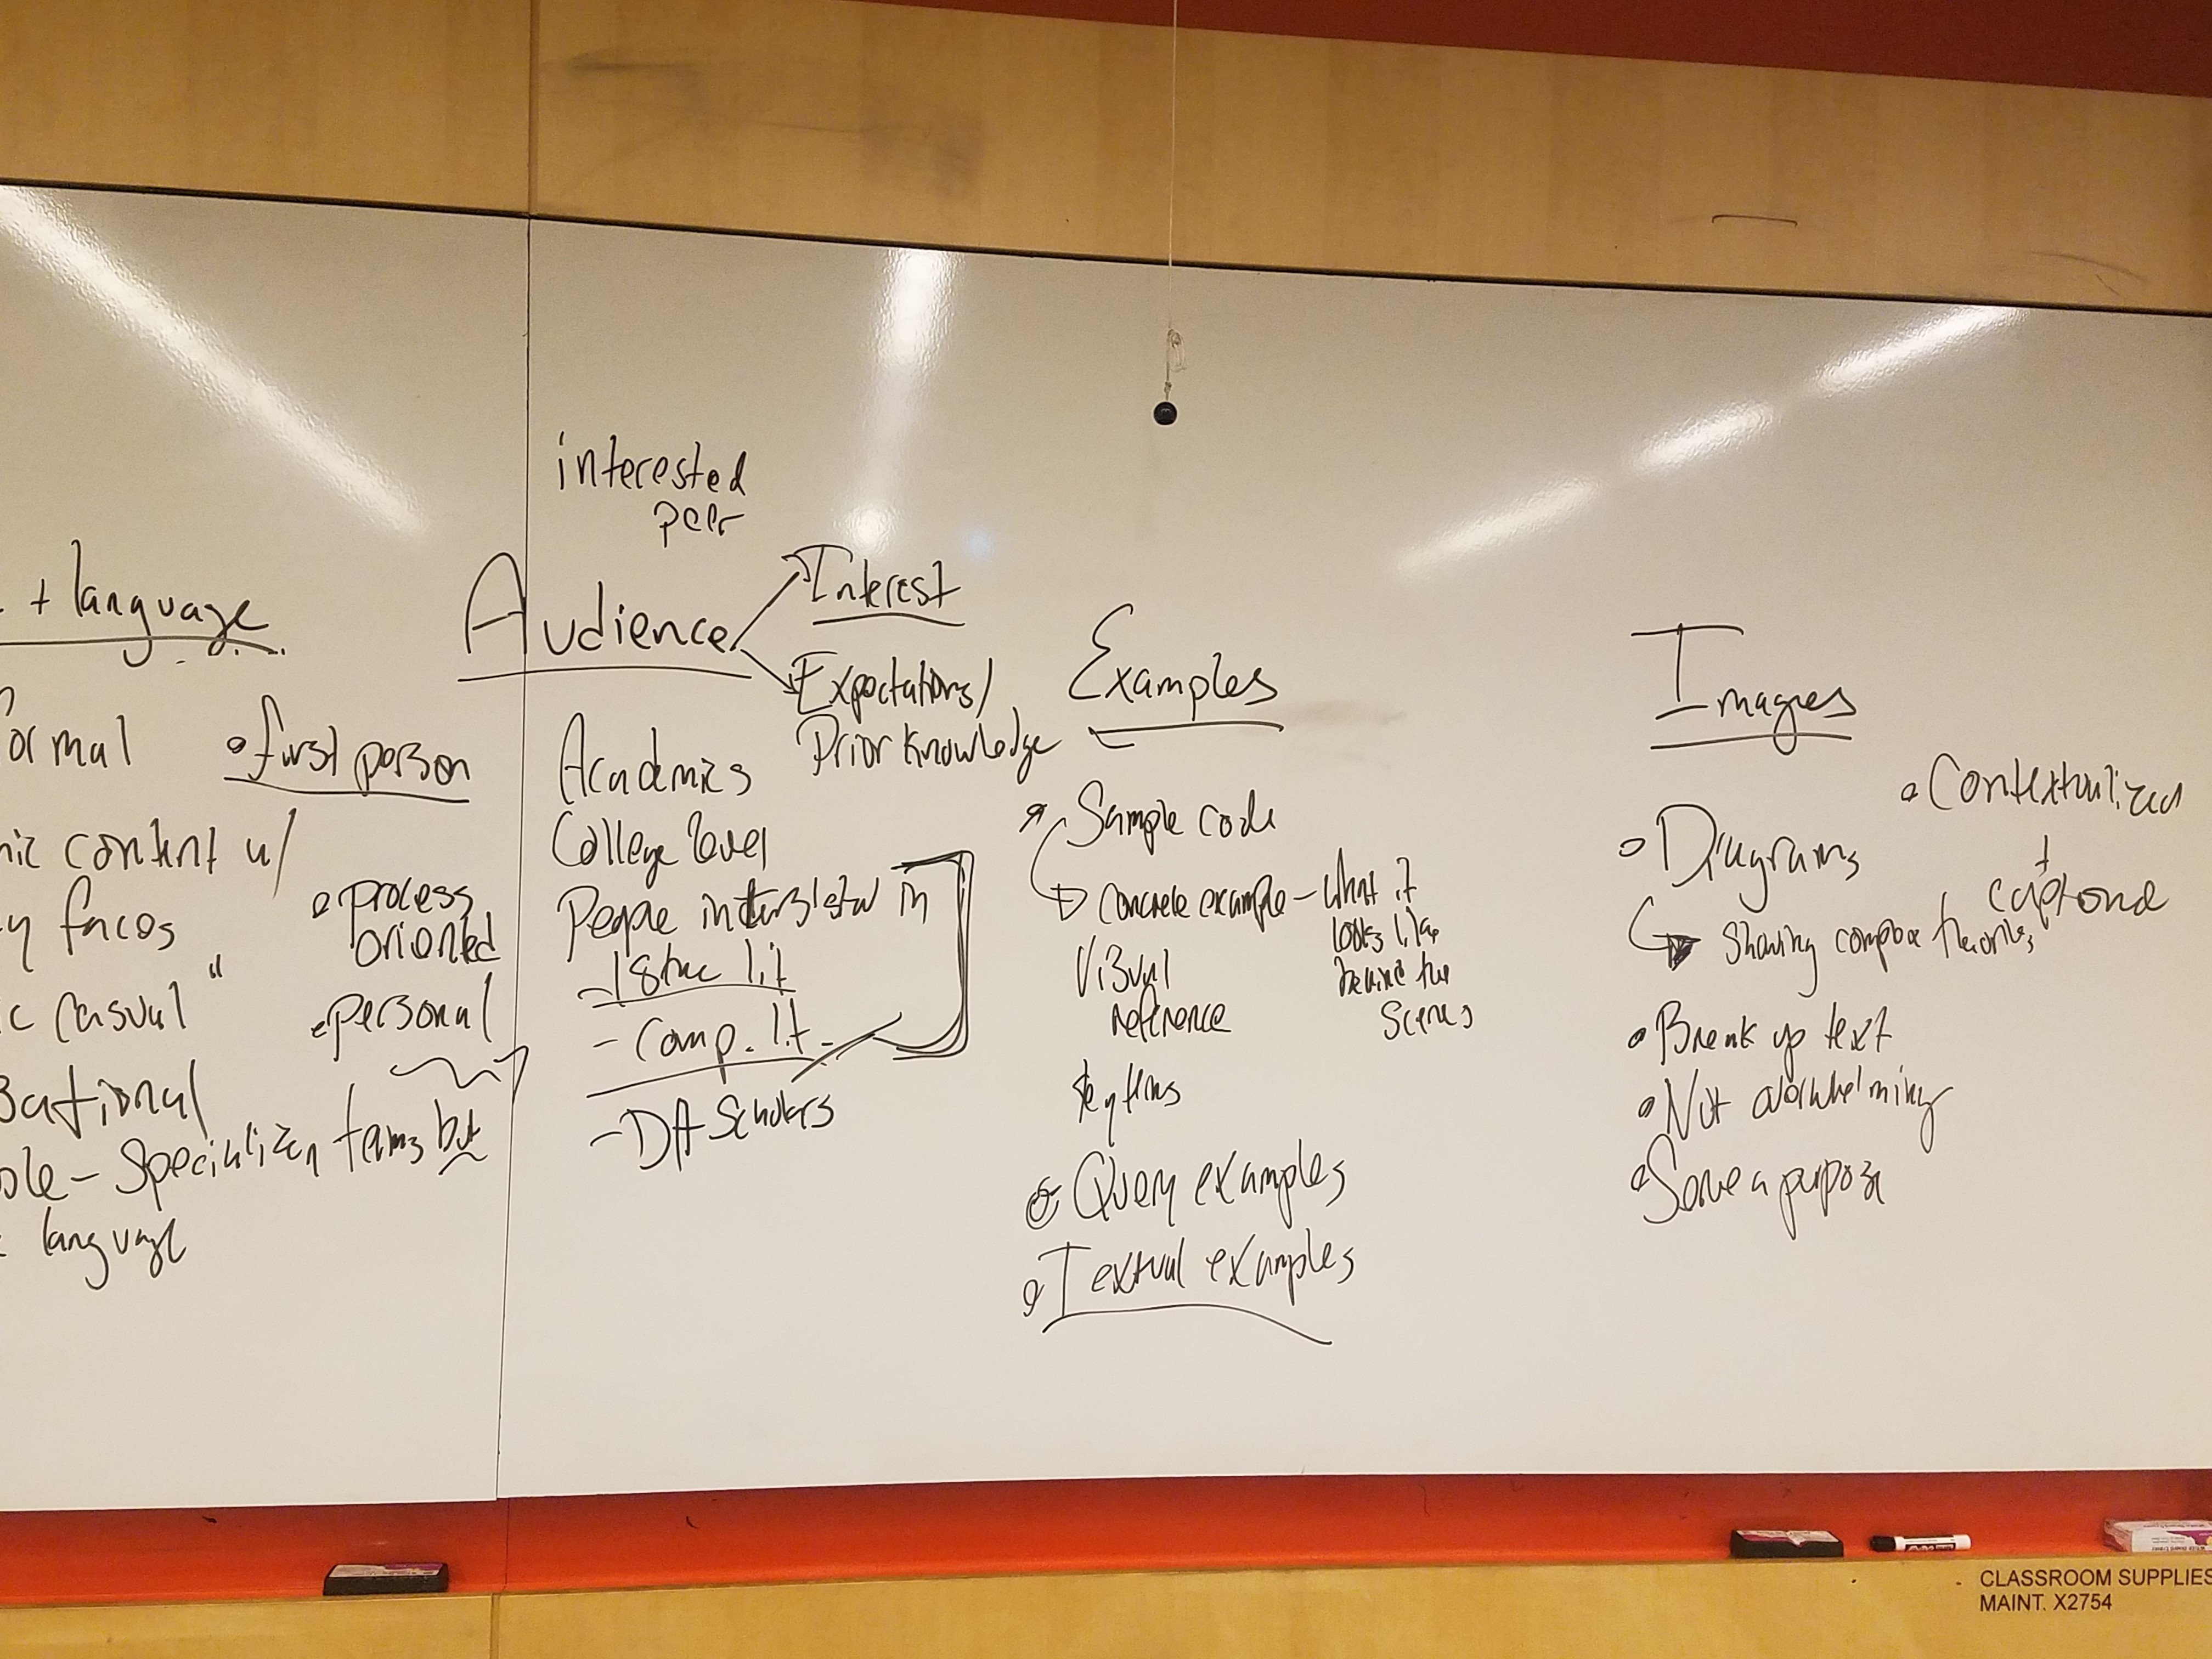 + language
ormal
• first person
nic content w/
y faces
• process
oriented
c casual"
• personal
sational
ble - specialized terms but
language
interested
peer
Audience
Interest
Expectations/
Prior knowledge
Academics
College level
People interested in
- 18thc lit
- Comp. lit.
- DH Scholars
Examples
Sample code
concrete example - what it
looks like
behind the
scenes
Visual
reference
Key terms
• Query examples
• Textual examples
Images
• Contextualized
+
captioned
• Diagrams
showing complex theories
• Break up text
• Not overwhelming
• Serve a purpose
CLASSROOM SUPPLIES
MAINT. X2754